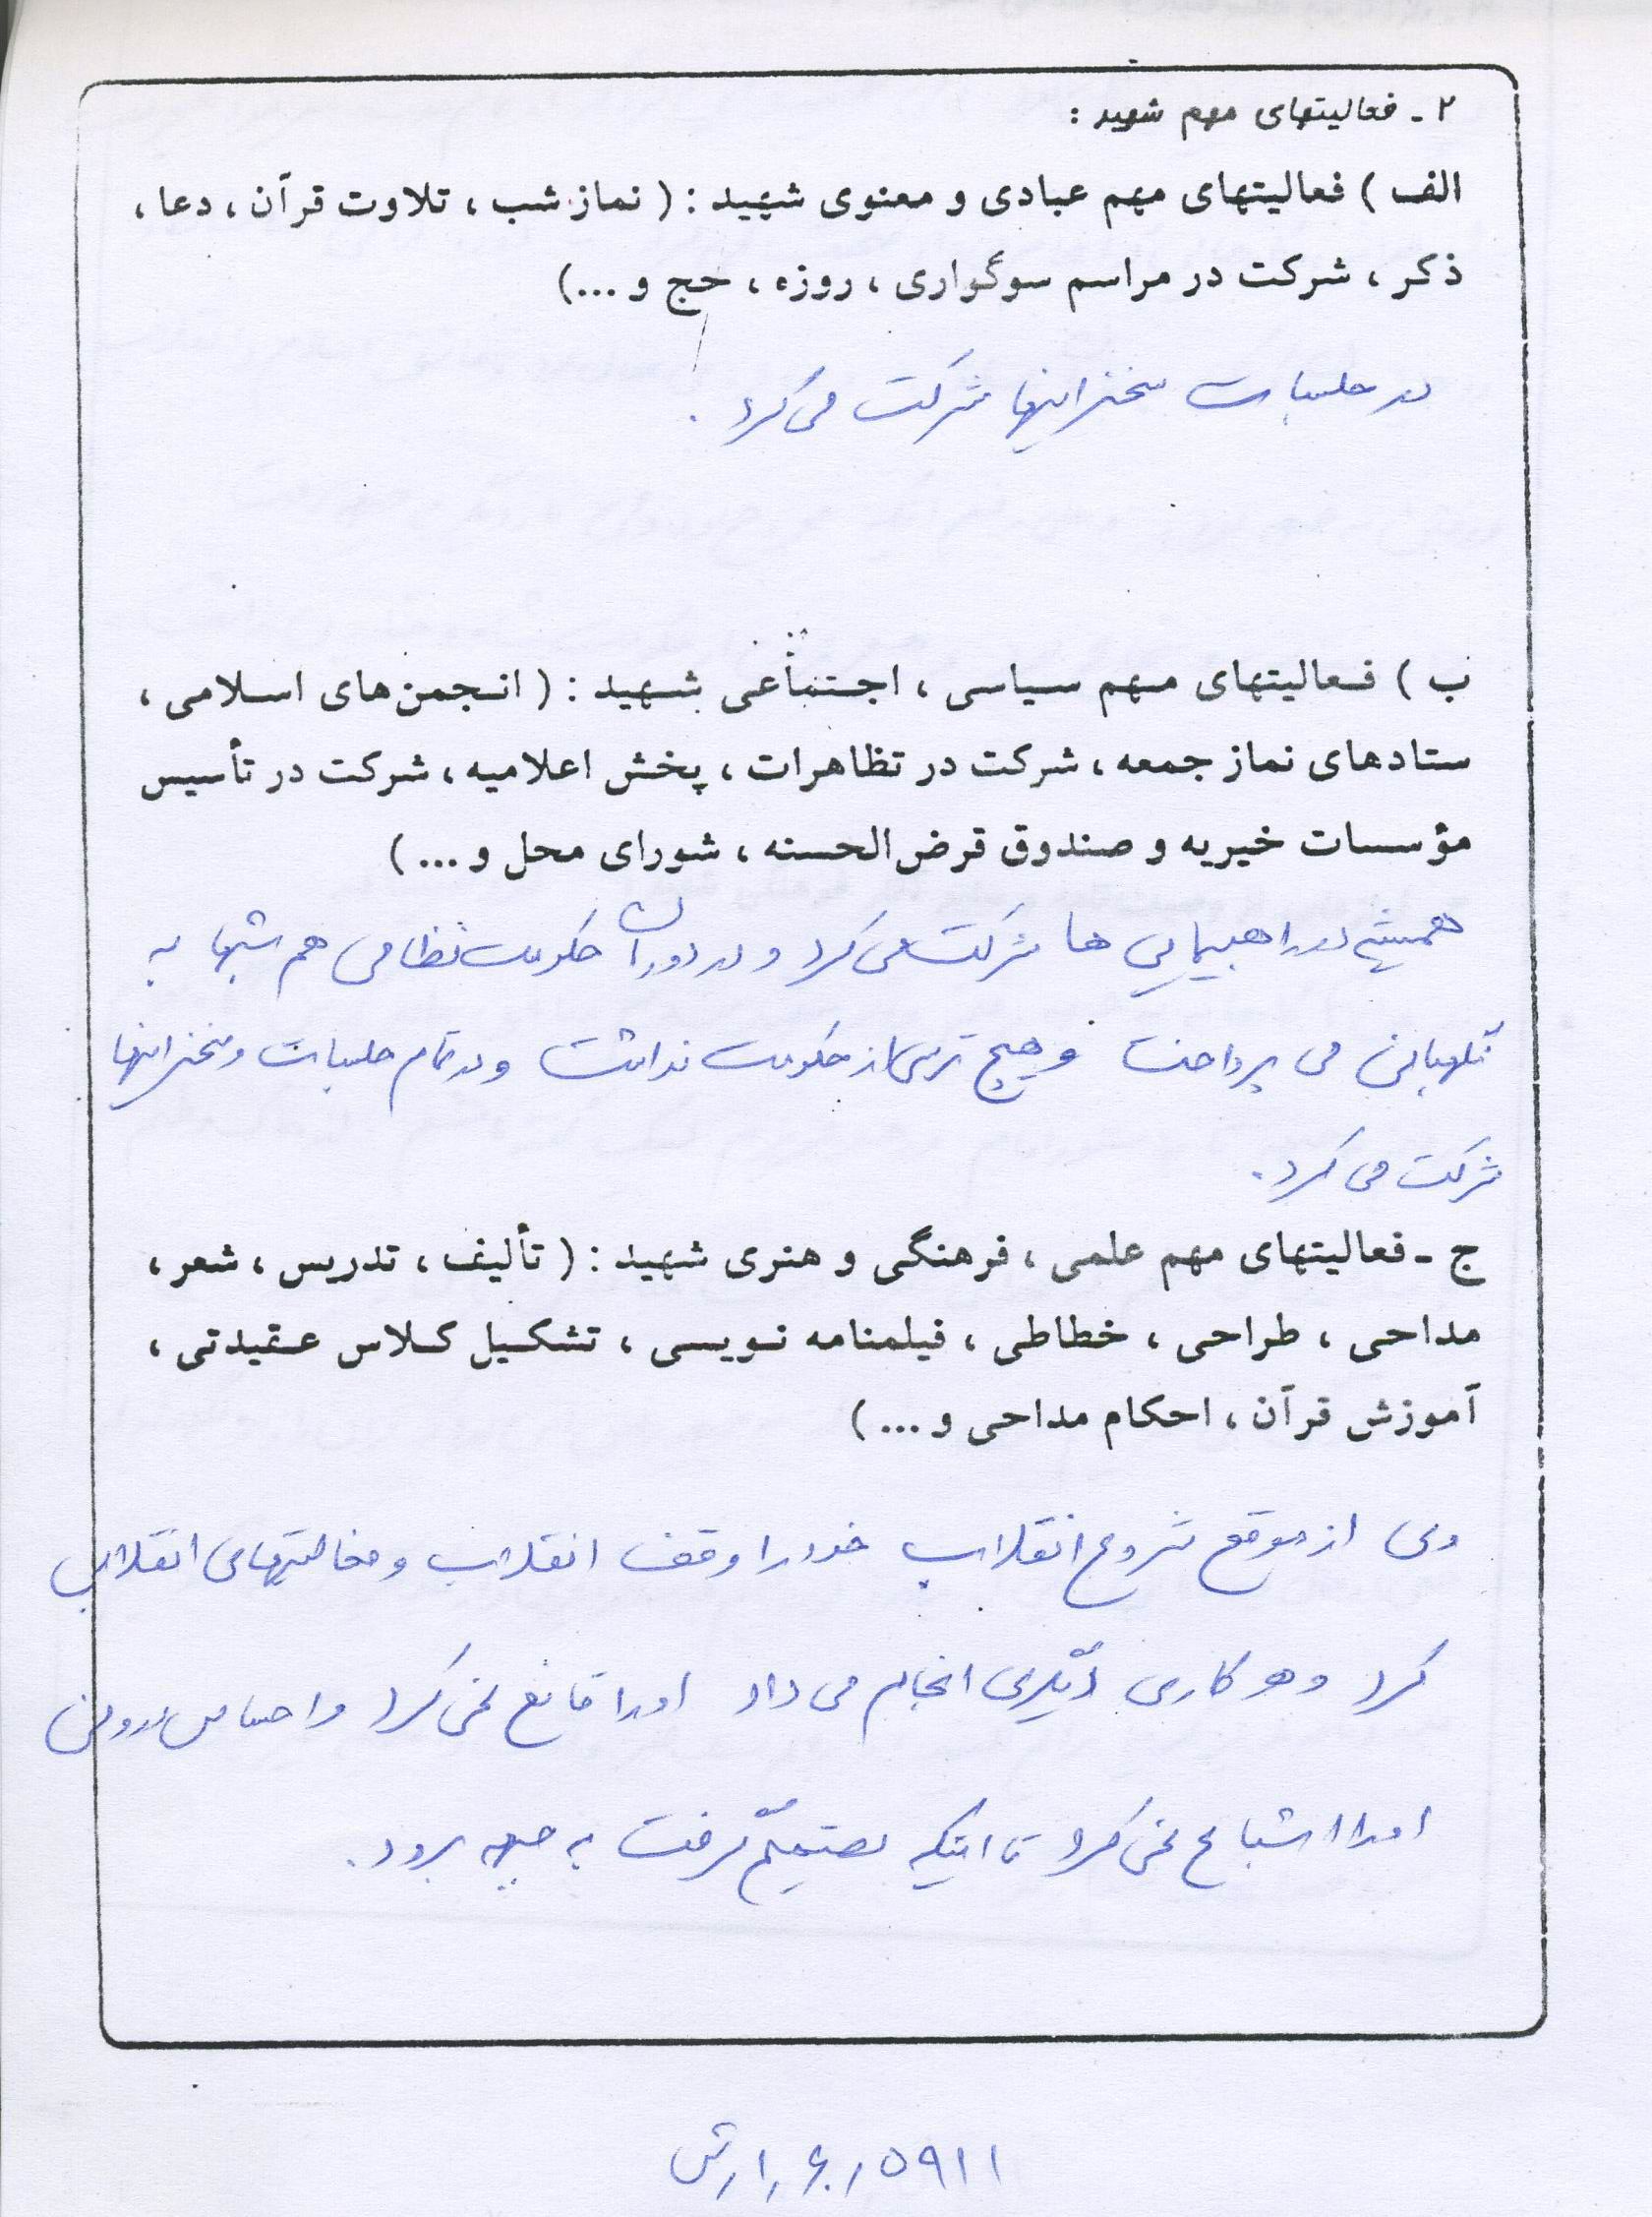 ۲ ـ فعالیتهای مهم شهید :
الف ) فعالیتهای مهم عبادی و معنوی شهید : ( نماز شب ، تلاوت قرآن ، دعا ،
ذکر ، شرکت در مراسم سوگواری ، روزه ، حج و ...)
در جلسات سخنرانیها شرکت می کرد .
ب ) فعالیتهای مهم سیاسی ، اجتماعی شهید : ( انجمن های اسلامی ،
ستادهای نماز جمعه ، شرکت در تظاهرات ، پخش اعلامیه ، شرکت در تأسیس
مؤسسات خیریه و صندوق قرض الحسنه ، شورای محل و ... )
همیشه در راهپیمایی ها شرکت می کرد و در دوران حکومت نظامی هم شبها به
نگهبانی می پرداخت و هیچ ترسی از حکومت نداشت و در تمام جلسات و سخنرانیها
شرکت می کرد .
ج ـ فعالیتهای مهم علمی ، فرهنگی و هنری شهید : ( تألیف ، تدریس ، شعر ،
مداحی ، طراحی ، خطاطی ، فیلمنامه نویسی ، تشکیل کلاس عقیدتی ،
آموزش قرآن ، احکام مداحی و ... )
وی از موقع شروع انقلاب خود را وقف انقلاب و فعالیتهای انقلاب
کرد و هر کاری دیگری انجام می داد او را قانع نمی کرد و احساس درونی
او را اشباع نمی کرد تا اینکه تصمیم گرفت به جبهه برود .
۵۹۱۱